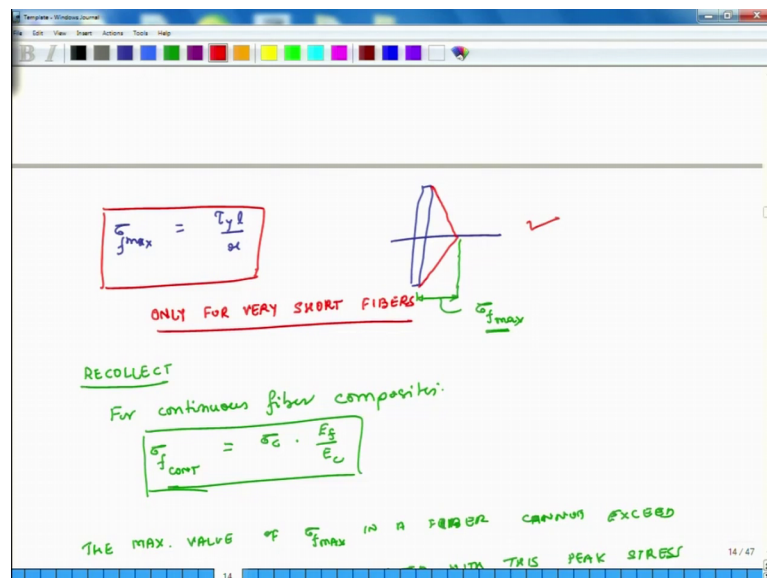 Template - Windows Journal
File Edit View Insert Actions Tools Help
B I
σ_fmax = τ_y l / r
ONLY FOR VERY SHORT FIBERS
σ_fmax
RECOLLECT
For continuous fiber composites.
σ_f CONT = σ_c . E_f / E_c
THE MAX. VALUE OF σ_fmax IN A FIBER CANNOT EXCEED
WITH THIS PEAK STRESS
14 / 47
14